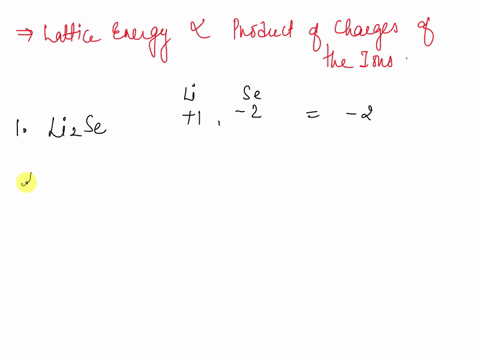 ⇒ Lattice Energy ∝ Product of Charges of
the Ions.
Li Se
1. Li₂Se +1, -2 = -2